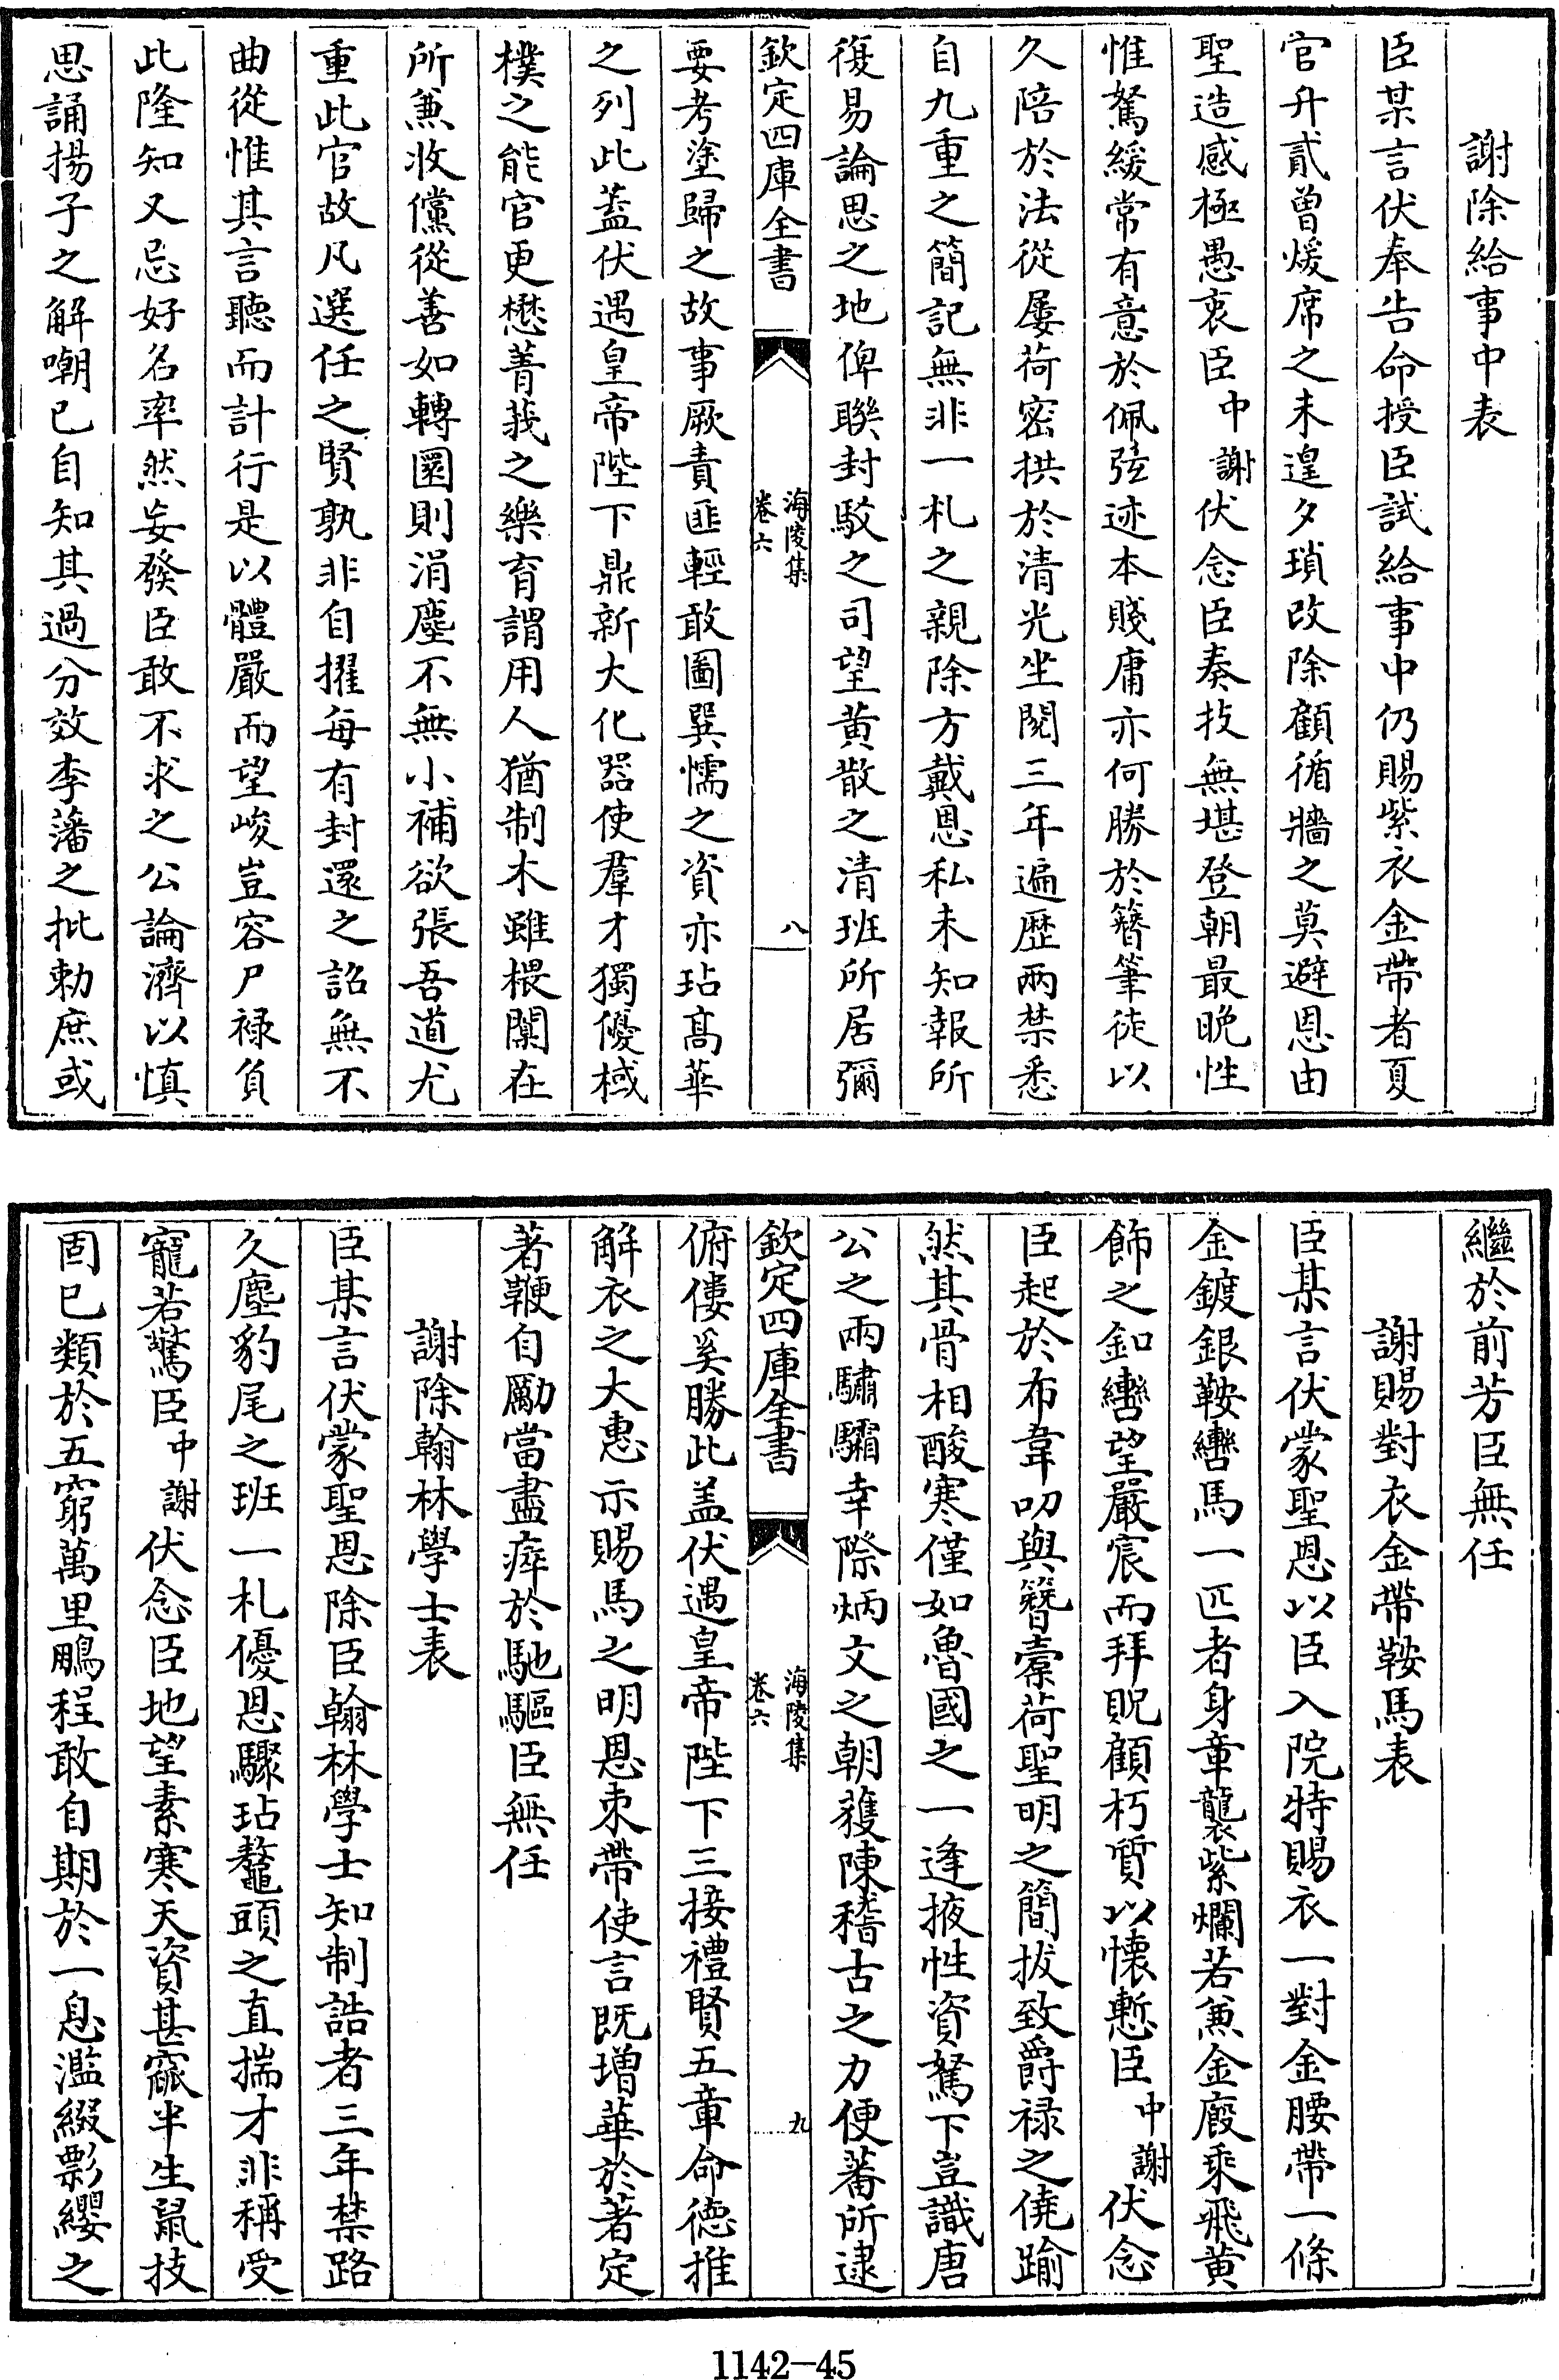 謝除給事中表
臣某言伏奉告命授臣試給事中仍賜紫衣金帶者夏
官升貳曾煖席之未遑夕瑣改除顧循牆之莫避恩由
聖造感極愚衷臣中謝伏念臣奏技無堪登朝最晩性
惟駑緩常有意於佩弦迹本賤庸亦何勝於簪筆徒以
久陪於法從屢荷密拱於清光坐閱三年遍歴兩禁悉
自九重之簡記無非一札之親除方戴恩私未知報所
復易論思之地俾聯封駁之司望黄散之清班所居彌
欽定四庫全書
海陵集
卷六
八
要考塗歸之故事厥責匪輕敢圖巽懦之資亦玷髙華
之列此葢伏遇皇帝陛下鼎新大化器使羣才獨優棫
樸之能官更懋菁莪之樂育謂用人猶制木雖椳闑在
所兼收儻從善如轉圜則涓塵不無小補欲張吾道尤
重此官故凡選任之賢孰非自擢每有封還之詔無不
曲從惟其言聽而計行是以體嚴而望峻豈容尸禄負
此隆知又忌好名率然妄發臣敢不求之公論濟以慎
思誦揚子之解嘲已自知其過分效李藩之批勅庶或
繼於前芳臣無任
謝賜對衣金帶鞍馬表
臣某言伏蒙聖恩以臣入院特賜衣一對金腰帶一條
金鍍銀鞍轡馬一匹者身章襲紫爛若兼金廐乘飛黄
飾之釦轡望嚴宸而拜貺顧朽質以懷慙臣中謝伏念
臣起於布韋叨與簪橐荷聖明之簡拔致爵禄之僥踰
然其骨相酸寒僅如魯國之一逢掖性資駑下豈識唐
公之兩驌驦幸際炳文之朝獲陳稽古之力便蕃所逮
欽定四庫全書
海陵集
卷六
九
俯僂奚勝此盖伏遇皇帝陛下三接禮賢五章命德推
解衣之大惠示賜馬之明恩束帶使言既增華於著定
著鞭自勵當盡瘁於馳驅臣無任
謝除翰林學士表
臣某言伏蒙聖恩除臣翰林學士知制誥者三年禁路
久塵豹尾之班一札優恩驟玷鼇頭之直揣才非稱受
寵若驚臣中謝伏念臣地望素寒天資甚窳半生鼠技
固已類於五窮萬里鵬程敢自期於一息濫綴影纓之
1142-45